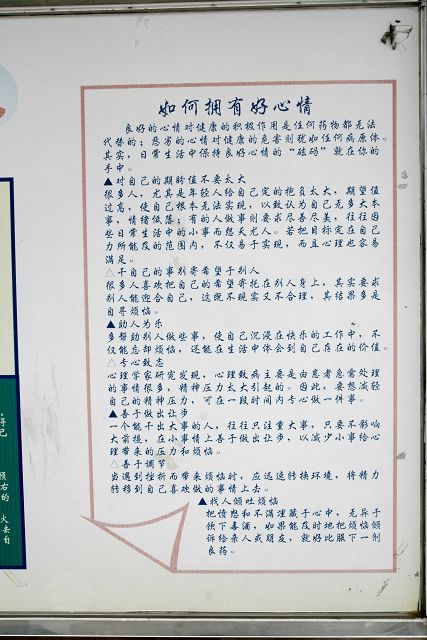 如何拥有好心情
良好的心情对健康的积极作用是任何药物都无法
代替的；恶劣的心情对健康的危害则犹如任何病原体。
其实，日常生活中保持良好心情的“砝码”就在你的
手中。
▲对自己的期盼值不要太大
很多人，尤其是年轻人给自己定的抱负太大，期望值
过高，使自己根本无法实现，以致认为自己无多大本
事，情绪低落；有的人做事则要求尽善尽美，往往因
些日常生活中的小事而怨天尤人。若把目标定在自己
力所能及的范围内，不仅易于实现，而且心理也容易
满足。
△干自己的事别寄希望于别人
很多人喜欢把自己的希望寄托在别人身上，其实要求
别人能迎合自己，这既不现实又不合理，其结果多是
自寻烦恼。
▲助人为乐
多帮助别人做些事，使自己沉浸在快乐的工作中，不
仅能忘却烦恼，还能在生活中体会到自己存在的价值。
△专心致志
心理学家研究发现，心理致病主要是由患者急需处理
的事情很多，精神压力太大引起的。因此，要想减轻
自己的精神压力，可在一段时间内专心做一件事。
▲善于做出让步
一个能干出大事的人，往往只注重大事，只要不影响
大前提，在小事情上善于做出让步，以减少小事给心
理带来的压力和烦恼。
△善于调节
当遇到挫折而带来烦恼时，应迅速转换环境，将精力
转移到自己喜欢做的事情上去。
▲找人倾吐烦恼
把愤怒和不满埋藏于心中，无异于
饮下毒酒，如果能及时地把烦恼倾
诉给亲人或朋友，就好比服下一剂
良药。